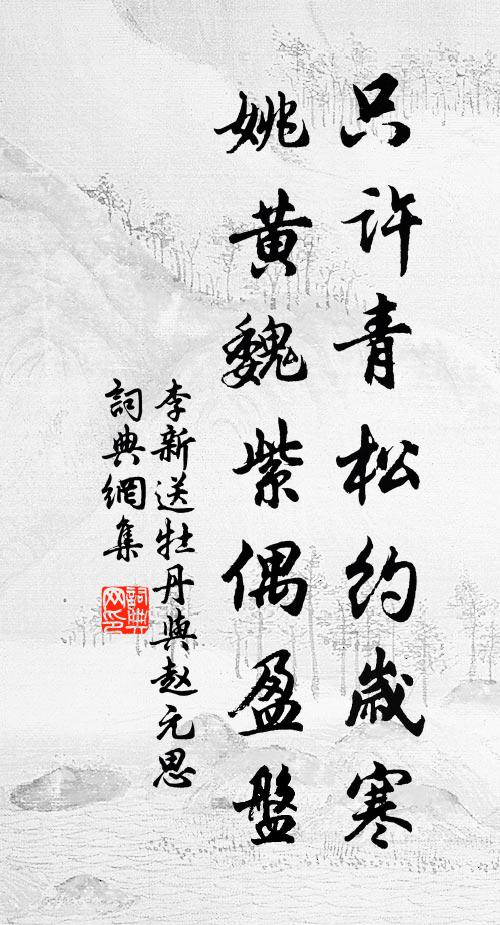 只许青松约歲寒
姚黄魏紫偶盈盤
李新送牡丹與赵元思
詞典網集
詞典
网印